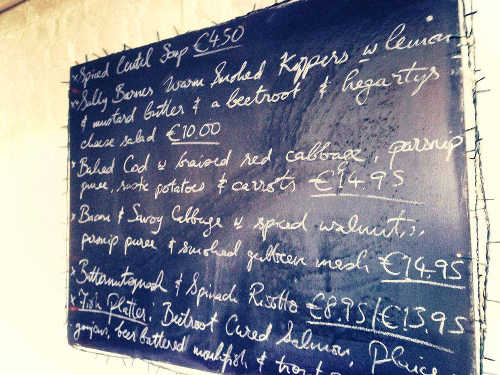 * Spiced Lentil Soup €4.50
* Sally Barnes Warm Smoked Kippers w lemon
& mustard butter & a beetroot & hegartys
cheese salad €10.00
* Baked Cod w braised red cabbage, parsnip
puree, roast potatoes & carrots €14.95
* Bacon & Savoy Cabbage w spiced walnuts,
parsnip puree & smoked gubbeen mash €14.95
* Butternutsquash & Spinach Risotto €8.95/€13.95
* Fish Platter: Beetroot Cured Salmon, Plaice
goujon, beer battered monkfish &